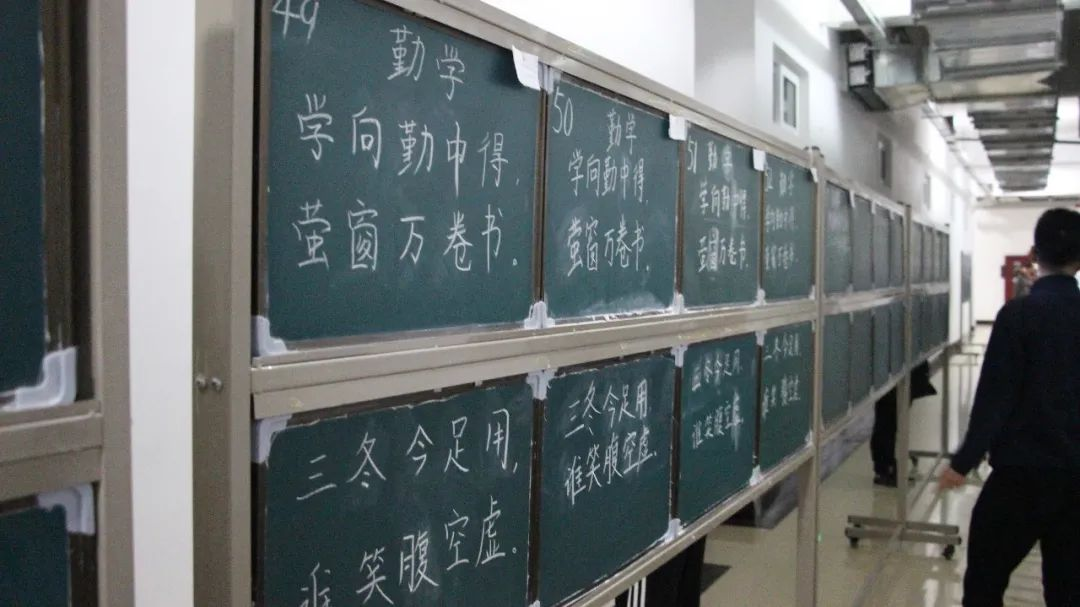 49
勤学
学向勤中得,
萤窗万卷书。
三冬今足用,
谁笑腹空虚。
50
勤学
学向勤中得,
萤窗万卷书.
三冬今足用
谁笑腹空虚.
51 勤学
学向勤中得.
萤窗万卷书.
三冬今足用.
谁笑腹空虚
勤学
学向勤中得,
萤窗万卷书.
三冬今足用,
谁笑腹空虚.